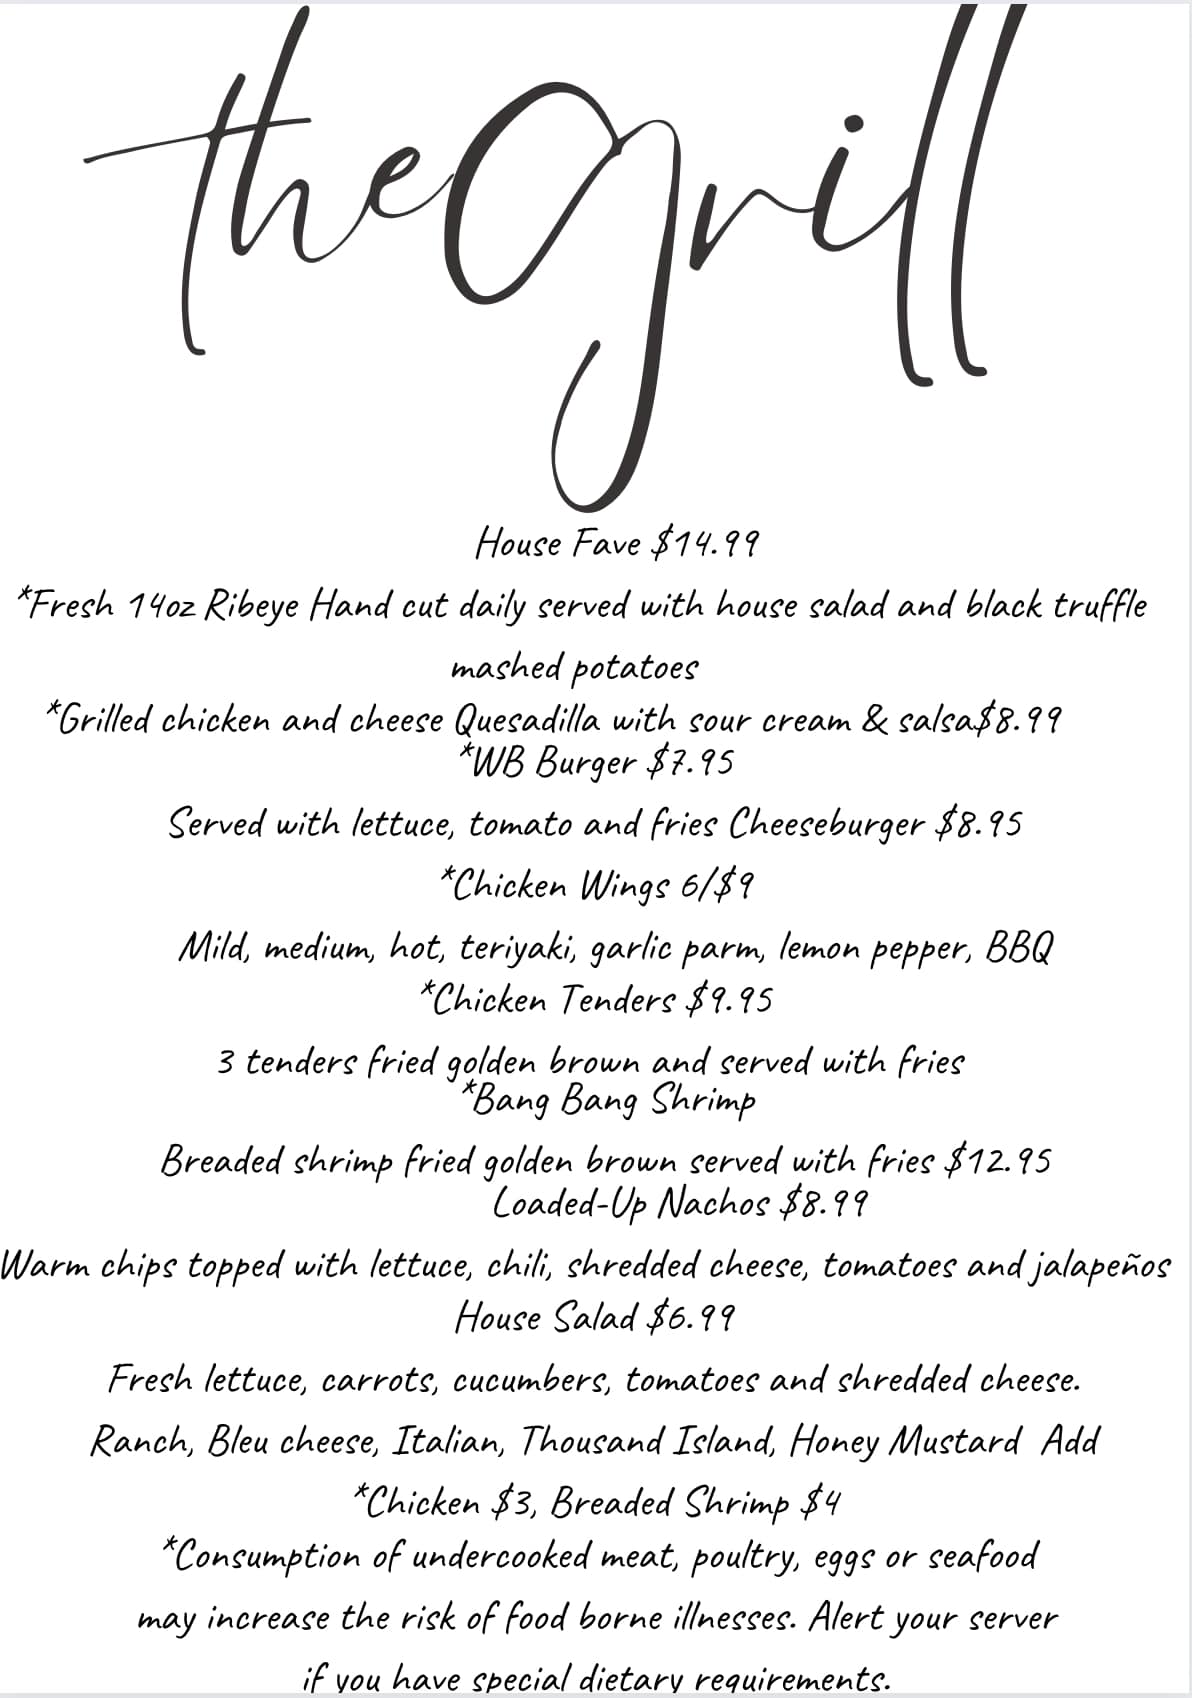 the grill
House Fave $14.99
*Fresh 14oz Ribeye Hand cut daily served with house salad and black truffle
mashed potatoes
*Grilled chicken and cheese Quesadilla with sour cream & salsa$8.99
*WB Burger $7.95
Served with lettuce, tomato and fries Cheeseburger $8.95
*Chicken Wings 6/$9
Mild, medium, hot, teriyaki, garlic parm, lemon pepper, BBQ
*Chicken Tenders $9.95
3 tenders fried golden brown and served with fries
*Bang Bang Shrimp
Breaded shrimp fried golden brown served with fries $12.95
Loaded-Up Nachos $8.99
Warm chips topped with lettuce, chili, shredded cheese, tomatoes and jalapeños
House Salad $6.99
Fresh lettuce, carrots, cucumbers, tomatoes and shredded cheese.
Ranch, Bleu cheese, Italian, Thousand Island, Honey Mustard  Add
*Chicken $3, Breaded Shrimp $4
*Consumption of undercooked meat, poultry, eggs or seafood
may increase the risk of food borne illnesses. Alert your server
if you have special dietary requirements.